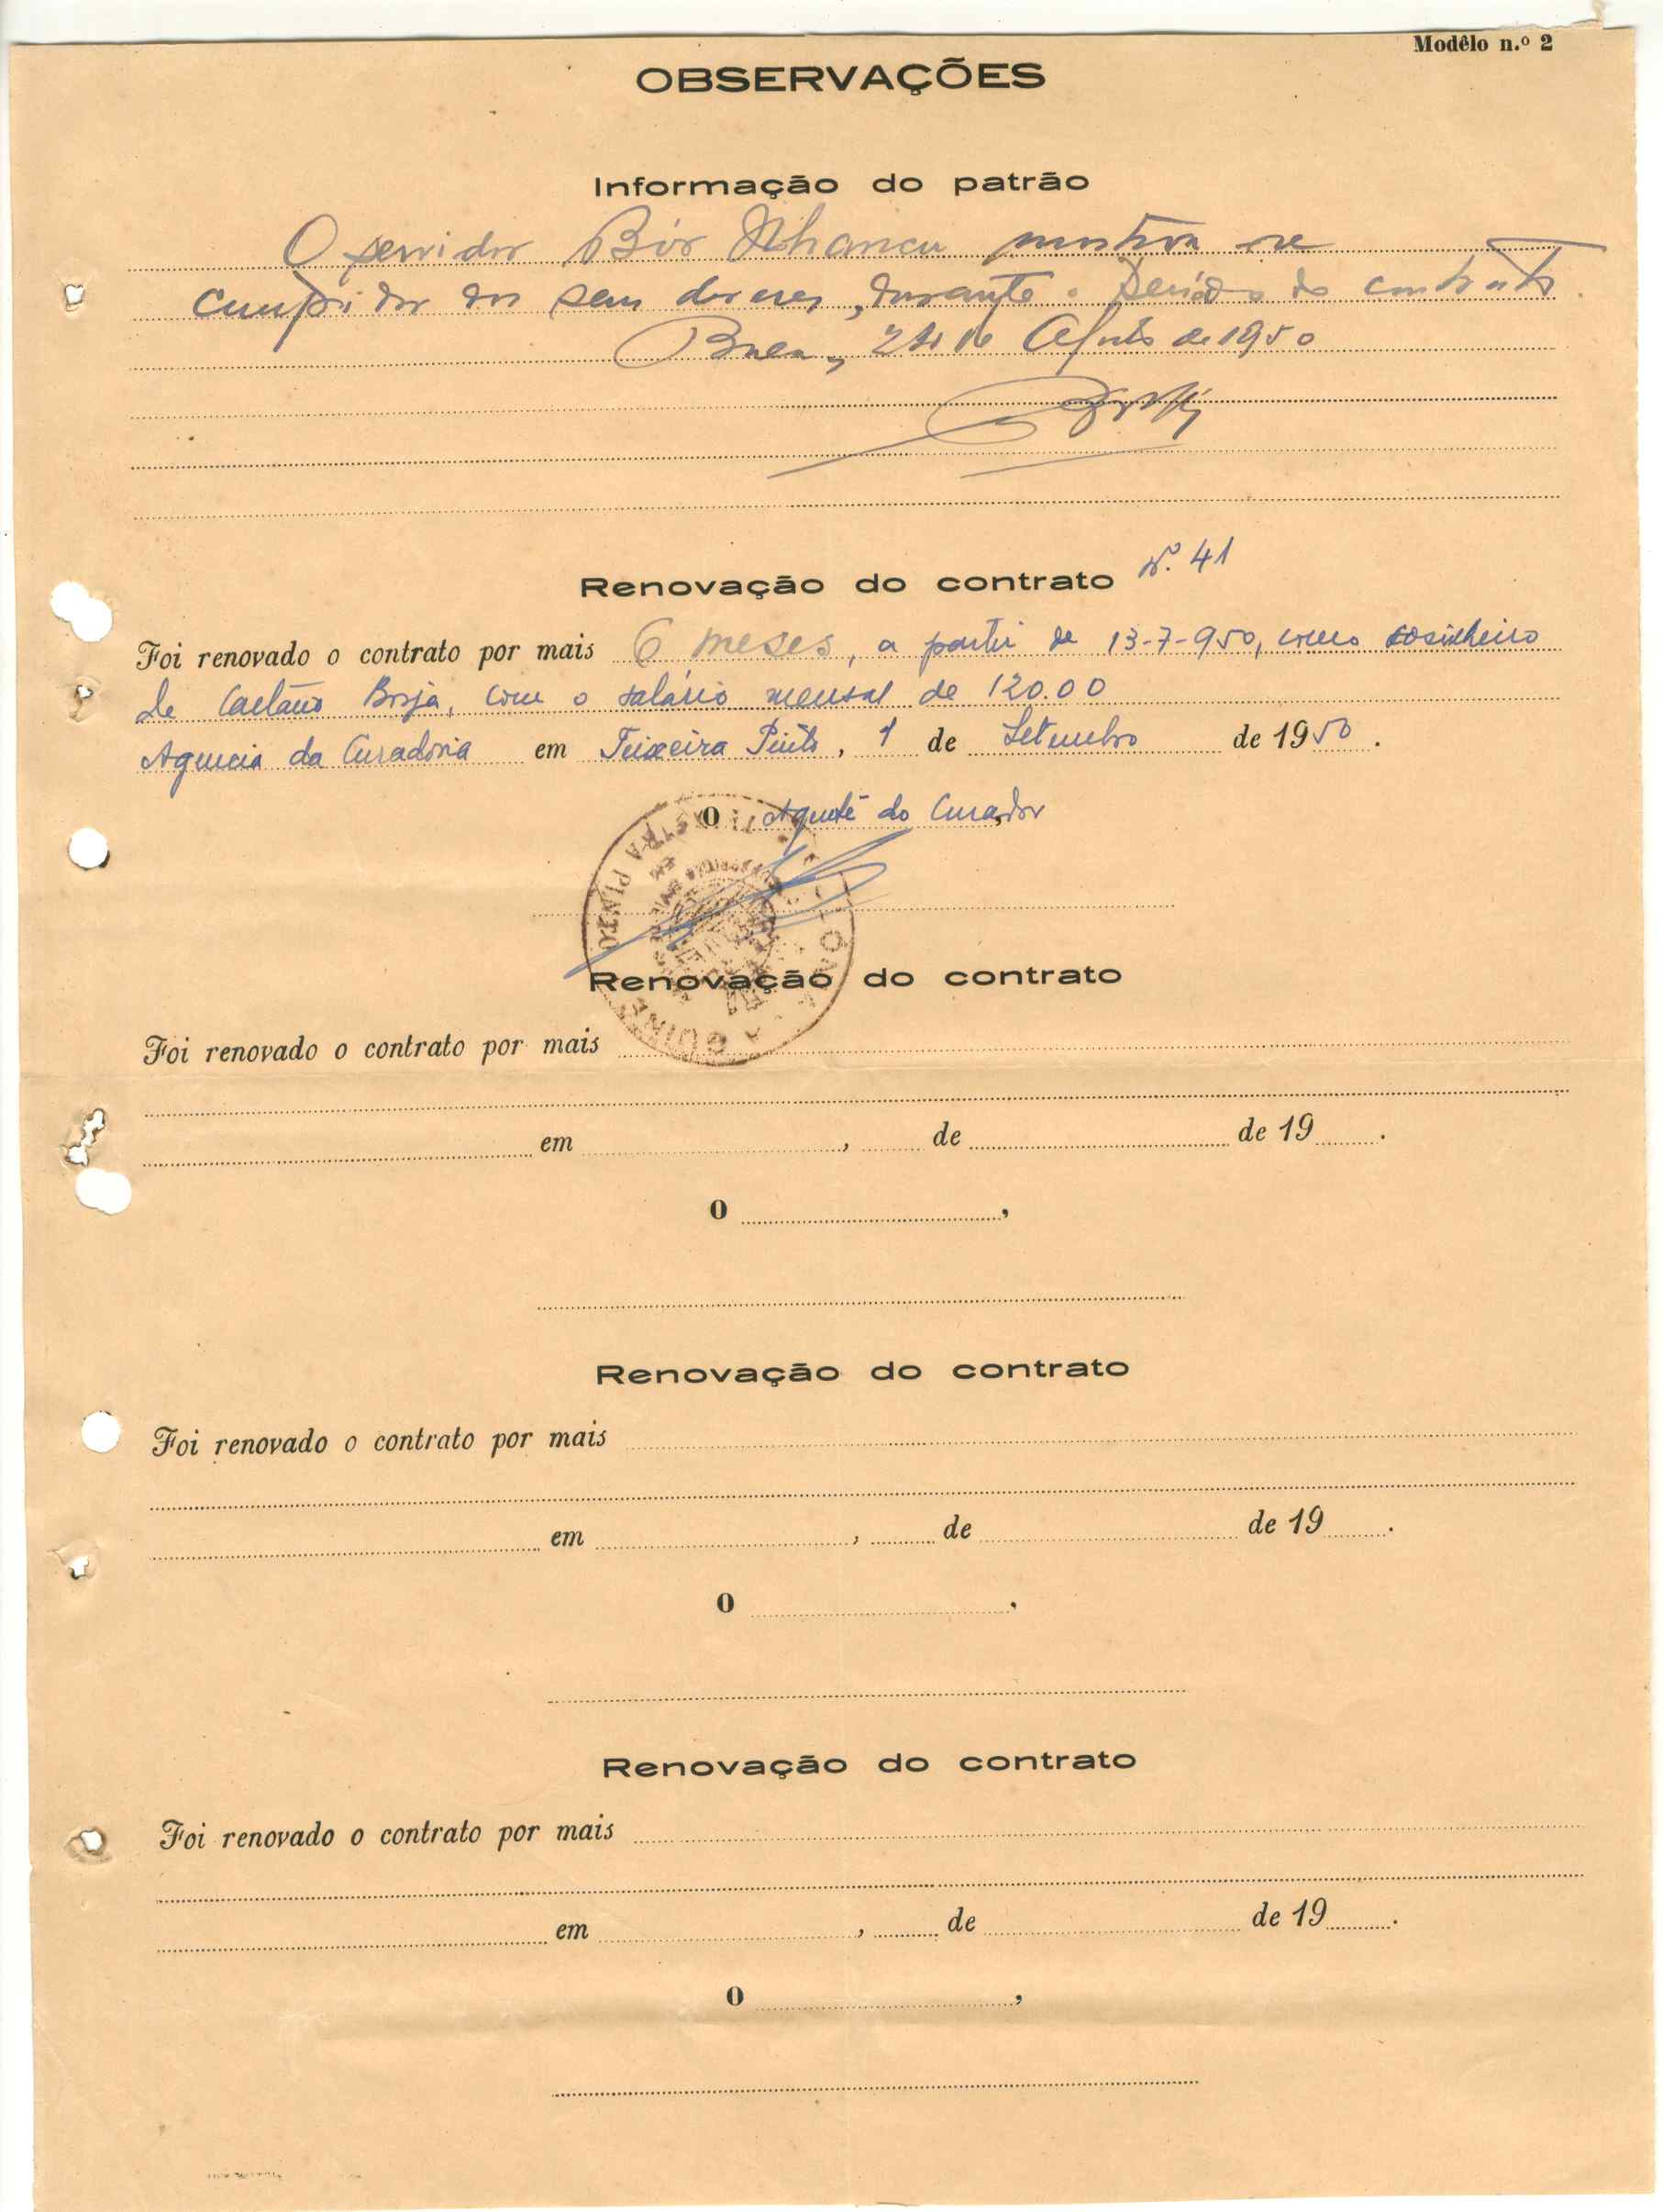 Modêlo n.º 2
OBSERVAÇÕES
Informação do patrão
O servidor Bór Nhanca mostrou se
cumpridor dos seus deveres, durante o período do contrato.
de Agosto de 1950
Renovação do contrato Nº. 41
Foi renovado o contrato por mais 6 meses, a partir de 13-7-950, como cosinheiro
de Caetano Borja, com o salário mensal de 120.00
Agencia da Curadoria em Teixeira Pinto, 1 de Setembro de 1950.
O Agente do Curador
TEIXEIRA PINTO
GUINÉ
Renovação do contrato
Foi renovado o contrato por mais
em , de de 19 .
O ,
Renovação do contrato
Foi renovado o contrato por mais
em , de de 19 .
O ,
Renovação do contrato
Foi renovado o contrato por mais
em , de de 19 .
O ,